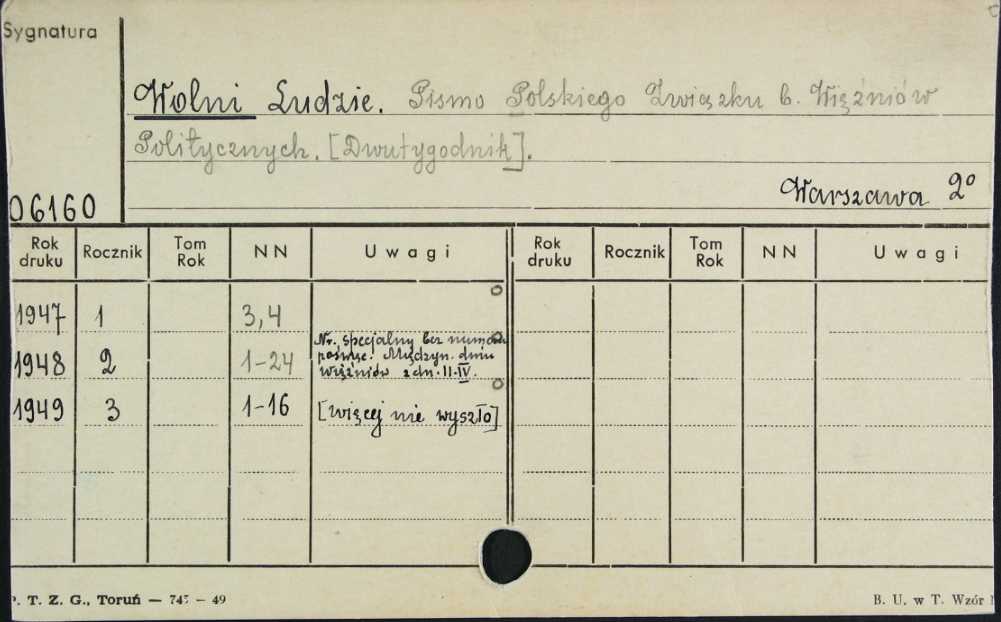 Sygnatura
Wolni Ludzie. Pismo Polskiego Związku b. Więźniów
Politycznych. [Dwutygodnik].
Warszawa 2°
06160
Rok druku Rocznik Tom Rok NN Uwagi Rok druku Rocznik Tom Rok NN Uwagi
1947 1 3,4
Nr. specjalny bez numeru
poświęc. Międzyn. dniu
1948 2 1-24
więźniów z dn. 11.IV.
1949 3 1-16 [więcej nie wyszło]
P. T. Z. G., Toruń — 745 — 49
B. U. w T. Wzór